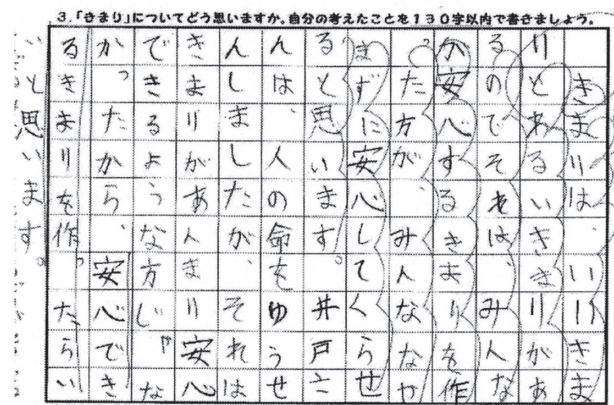 3.「きまり」についてどう思いますか。自分の考えたことを130字以内で書きましょう。
きまりは、いいきま
りとわるいきまりがあ
るのでそれは、みんな
が安心するきまりを作
った方が、みんなや
まずに安心してくらせ
ると思います。井戸さ
んは、人の命をゆうせ
んしましたが、それは
きまりがあんまり安心
できるような方じゃな
かったから、安心でき
るきまりを作ったらい
いと思います。